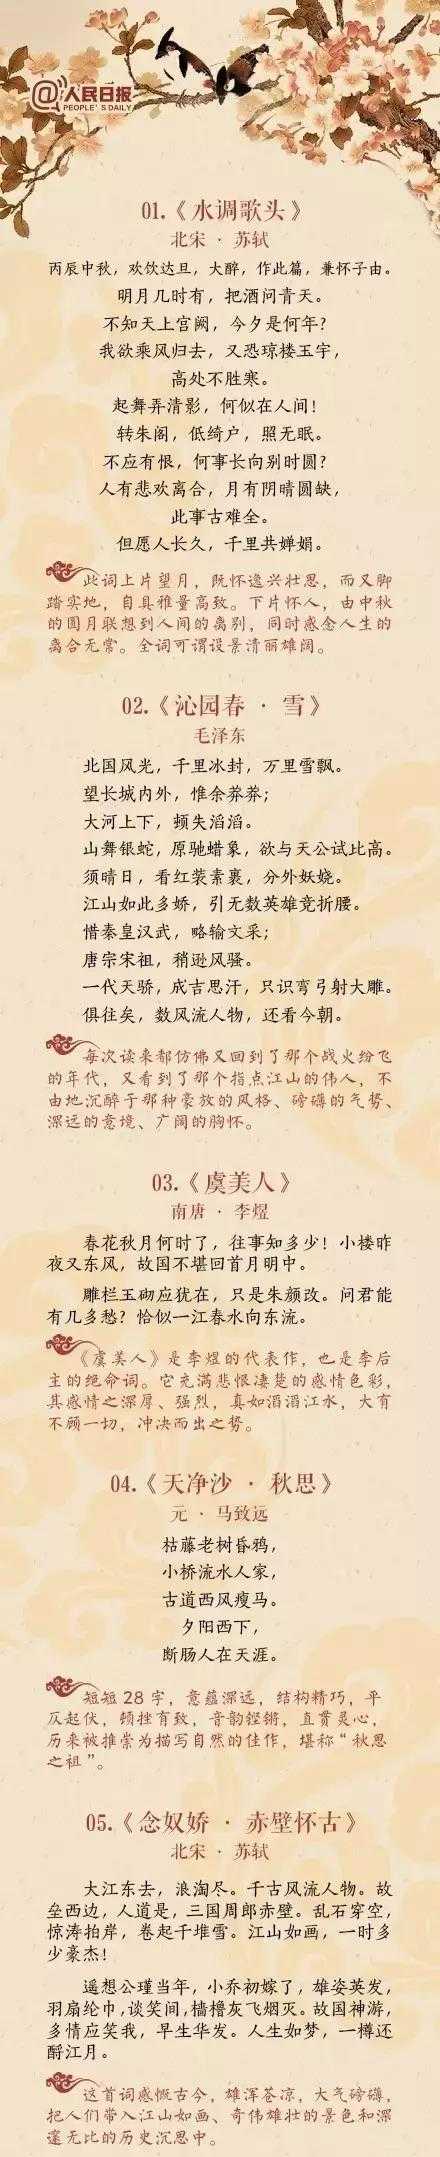 @人民日报
PEOPLE'S DAILY
01.《水调歌头》
北宋 · 苏轼
丙辰中秋，欢饮达旦，大醉，作此篇，兼怀子由。
明月几时有，把酒问青天。
不知天上宫阙，今夕是何年？
我欲乘风归去，又恐琼楼玉宇，
高处不胜寒。
起舞弄清影，何似在人间！
转朱阁，低绮户，照无眠。
不应有恨，何事长向别时圆？
人有悲欢离合，月有阴晴圆缺，
此事古难全。
但愿人长久，千里共婵娟。
此词上片望月，既怀逸兴壮思，而又脚
踏实地，自具雅量高致。下片怀人，由中秋
的圆月联想到人间的离别，同时感念人生的
离合无常。全词可谓设景清丽雄阔。
02.《沁园春 · 雪》
毛泽东
北国风光，千里冰封，万里雪飘。
望长城内外，惟余莽莽；
大河上下，顿失滔滔。
山舞银蛇，原驰蜡象，欲与天公试比高。
须晴日，看红装素裹，分外妖娆。
江山如此多娇，引无数英雄竞折腰。
惜秦皇汉武，略输文采；
唐宗宋祖，稍逊风骚。
一代天骄，成吉思汗，只识弯弓射大雕。
俱往矣，数风流人物，还看今朝。
每次读来都仿佛又回到了那个战火纷飞
的年代，又看到了那个指点江山的伟人，不
由地沉醉于那种豪放的风格、磅礴的气势、
深远的意境、广阔的胸怀。
03.《虞美人》
南唐 · 李煜
春花秋月何时了，往事知多少！小楼昨
夜又东风，故国不堪回首月明中。
雕栏玉砌应犹在，只是朱颜改。问君能
有几多愁？恰似一江春水向东流。
《虞美人》是李煜的代表作，也是李后
主的绝命词。它充满悲恨凄楚的感情色彩，
其感情之深厚、强烈，真如滔滔江水，大有
不顾一切，冲决而出之势。
04.《天净沙 · 秋思》
元 · 马致远
枯藤老树昏鸦，
小桥流水人家，
古道西风瘦马。
夕阳西下，
断肠人在天涯。
短短28字，意蕴深远，结构精巧，平
仄起伏，顿挫有致，音韵铿锵，直贯灵心，
历来被推崇为描写自然的佳作，堪称“秋思
之祖”。
05.《念奴娇 · 赤壁怀古》
北宋 · 苏轼
大江东去，浪淘尽。千古风流人物。故
垒西边，人道是，三国周郎赤壁。乱石穿空，
惊涛拍岸，卷起千堆雪。江山如画，一时多
少豪杰！
遥想公瑾当年，小乔初嫁了，雄姿英发，
羽扇纶巾，谈笑间，樯橹灰飞烟灭。故国神游，
多情应笑我，早生华发。人生如梦，一樽还
酹江月。
这首词感慨古今，雄浑苍凉，大气磅礴，
把人们带入江山如画、奇伟雄壮的景色和深
邃无比的历史沉思中。